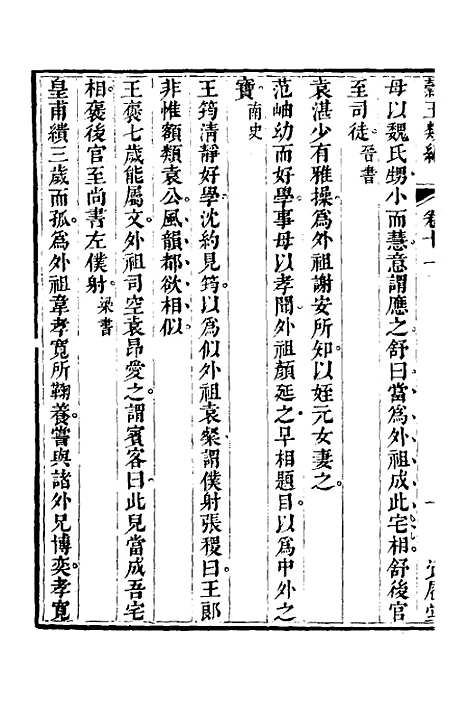 卷十一
母以魏氏甥小而慧意謂應之舒曰當為外祖成此宅相舒後官
至司徒晉書
袁湛少有雅操為外祖謝安所知以姪元女妻之
范岫幼而好學事母以孝聞外祖顏延之早相題目以為中外之
寶南史
王筠清靜好學沈約見筠以為似外祖袁粲謂僕射張稷曰王郎
非惟額類袁公風韻都欲相似
王褒七歲能屬文外祖司空袁昂愛之謂賓客曰此兒當成吾宅
相褒後官至尚書左僕射梁書
皇甫績三歲而孤為外祖韋孝寬所鞠養嘗與諸外兄博奕孝寬